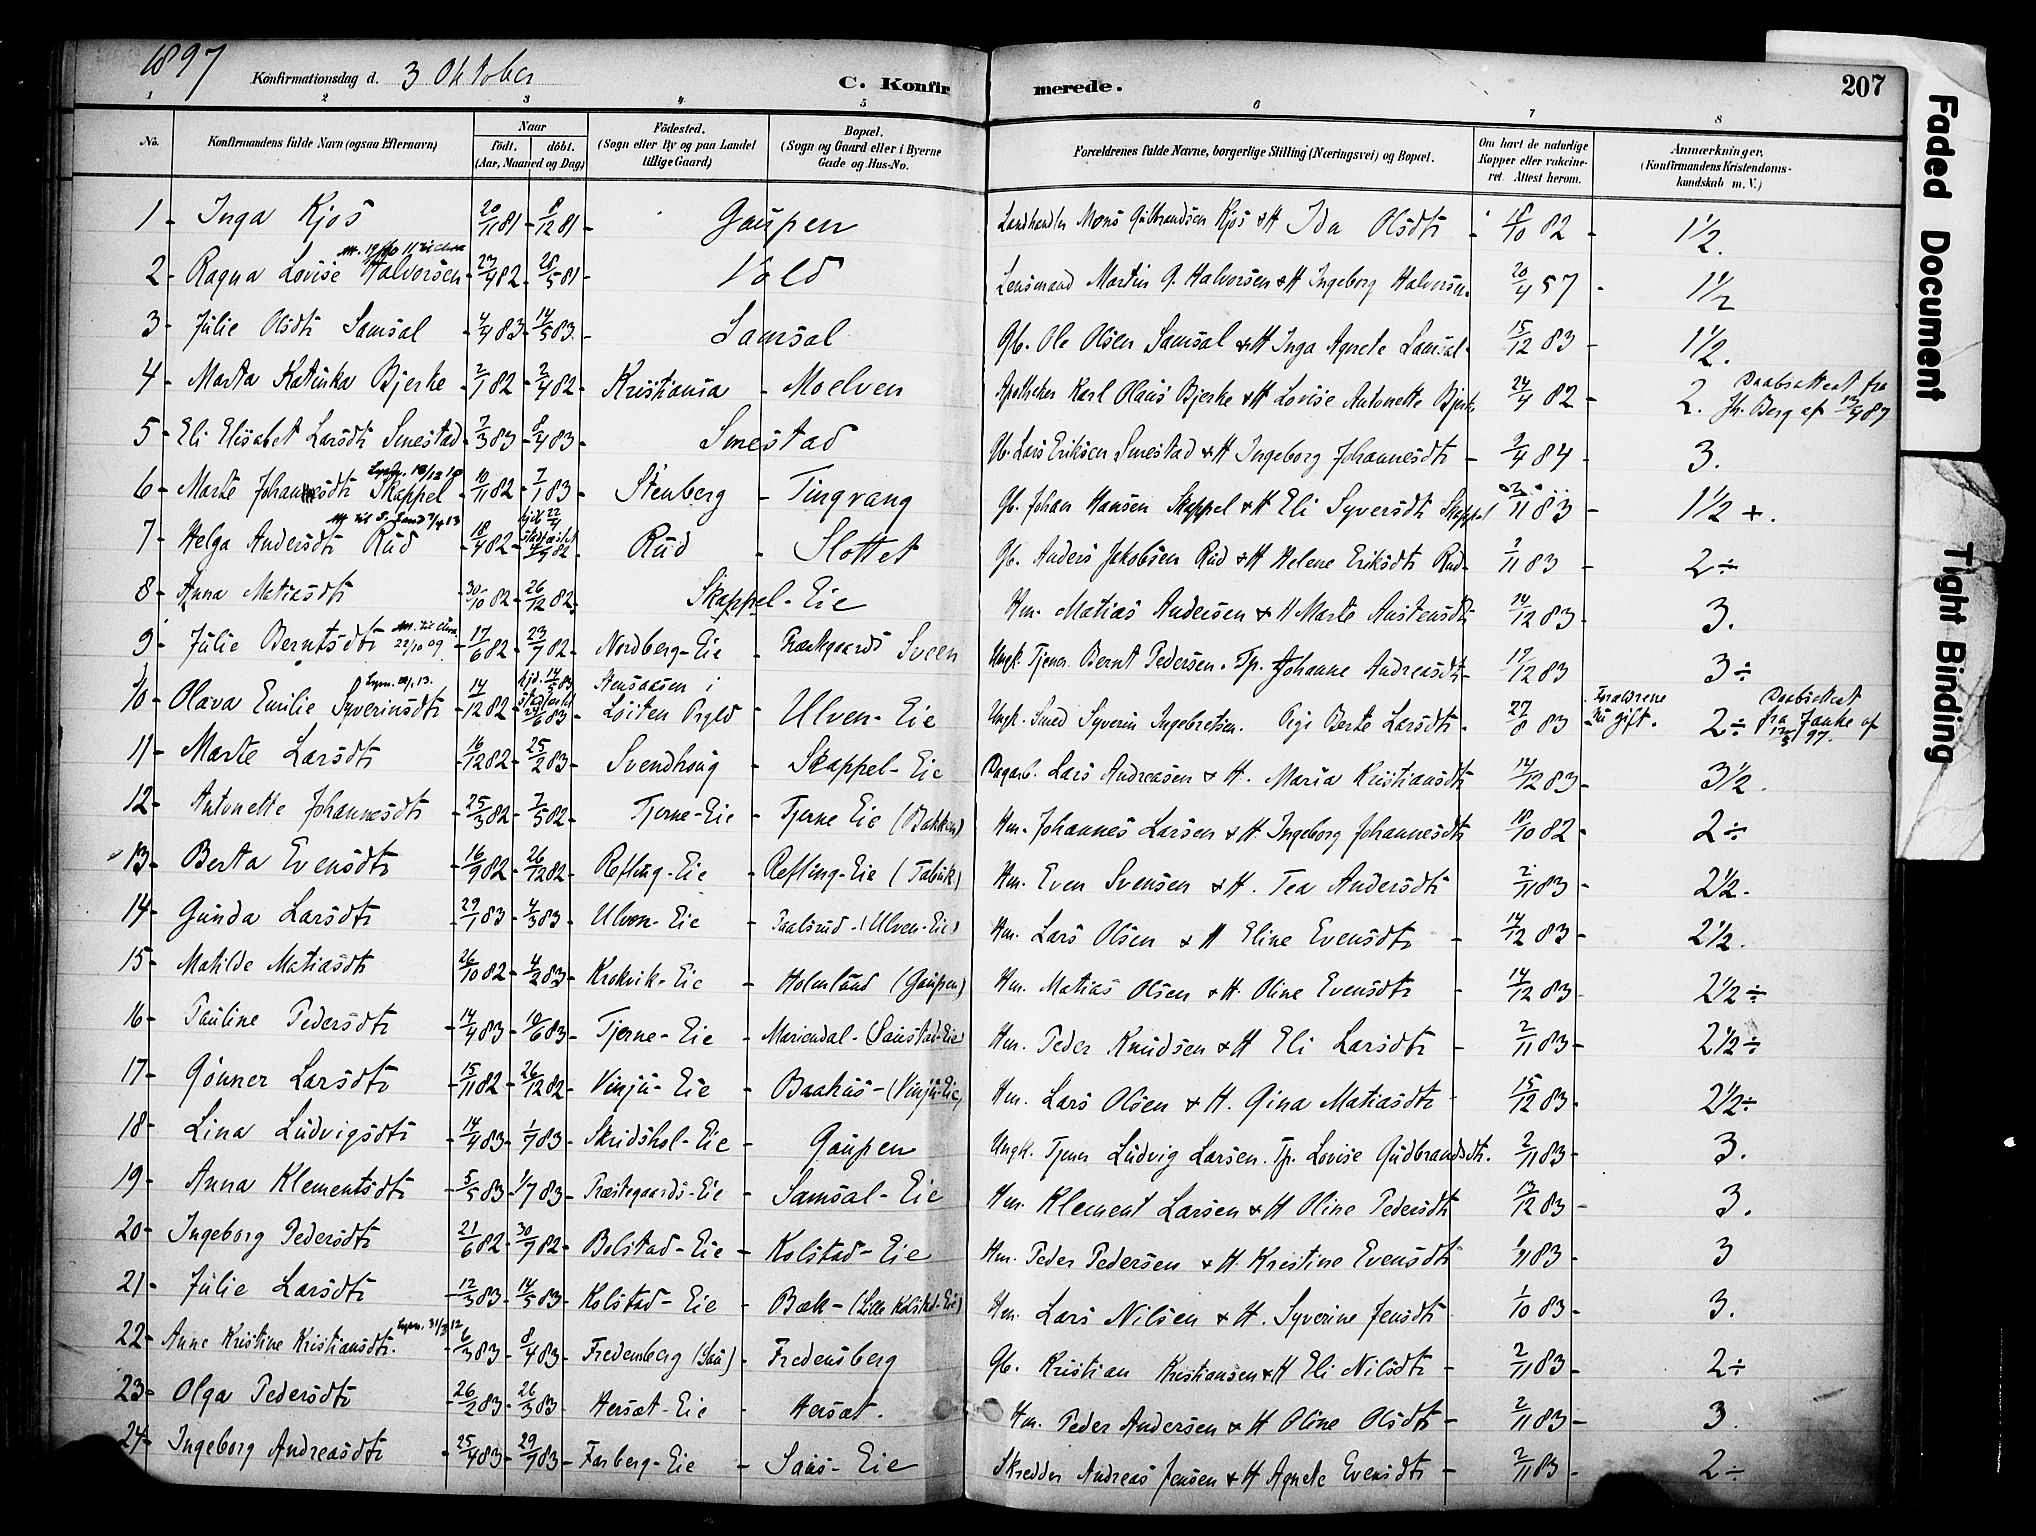 1897
Konfirmationsdag d. 3 Oktober
C. Konfirmerede.
207
1 2 3 4 5 6 7 8
No. Konfirmandens fulde Navn (ogsaa Efternavn) Naar født. døbt. (Aar, Maaned og Dag) Fødested. (Sogn eller By og paa Landet tillige Gaard) Bopæl. (Sogn og Gaard eller i Byerne Gade og Hus-No. Forældrenes fulde Navne, borgerlige Stilling (Næringsvei) og Bopæl. Om havt de naturlige Kopper eller vakcineret. Attest herom. Anmærkninger. (Konfirmandens Kristendomskundskab m. V.)
1 - Inga Kjos 20/11 81 - 8/12 81 - Gaupen Landhandler Mons Gulbrandsen Kjos & H Ida Olsdtr - 18/10 82 - 1½.
2 - Ragna Lovise Halvorsen - 23/4 82 - 28/5 81 - Vold Lensmand Martin G. Halvorsen & H Ingeborg Halvorsen 20/4 57 - 1½
3 - Julie Olsdtr Samsal - 4/4 83 - 14/5 83. - Samsal Gb. Ole Olsen Samsal & H Inga Agnete Samsal - 15/12 83 - 1½.
4 - Marta Katinka Bjerke - 2/1 82 - 2/4 82 - Kristiania - Moelven Apotheker Karl Olaus Bjerke & H Lovise Antonette Bjerke 24/4 82 - 2. Daabsattest fra Fr. Berg af 12/4 87
5 - Eli Elisabet Larsdtr Smestad - 7/3 83 - 8/4 83 - Smestad Gb. Lars Eriksen Smestad & H Ingeborg Johannesdtr - 9/4 84 - 3.
6 - Marte Johannesdtr Skappel - 10/11 82 - 7/1 83 - Stenberg - Tingvang Gb. Johan Hansen Skappel & H Eli Syversdtr Skappel 2/11 83 - 1½ +.
7 - Helga Andersdtr Rud - 18/4 82 - hjd. 22/4 Rud - Slottet Gb. Anders Jakobsen Rud & H Helene Eriksdtr Rud - 2/11 83 - 2 ÷
8 - Anna Matiasdtr - 30/10 82 - 26/12 82. Skappel - Eie Hm. Matias Andersen & H Marte Austensdtr 14/12 83 - 3.
9 - Julie Berntsdtr 22/10 09 - 17/6 82 - 23/7 82 - Nordberg - Eie - Præstgaards Sveen Ungk. Tjener Bernt Pedersen. Tp. Johanne Andreasdtr - 17/12 83 3 ÷
10 - Olava Emilie Syverinsdtr - 14/12 82 - hjd. 14/5 83 Stensaasen i Løiten Prgld - Ulven - Eie Ungk. Smed Syverin Ingebretsen. Pige Berte Larsdtr - 27/8 83 Forældrene nu gift. 2 ÷ Daabsattest fra Fauke af 12/5 97.
11 - Marte Larsdtr - 16/12 82 - 25/2 83 - Svendhaug - Skappel - Eie Dagarb. Lars Andreasen & H. Maria Kristiansdtr 14/12 83 - 3½.
12 - Antonette Johannesdtr - 25/3 82 - 7/5 82 - Tjerne - Eie - Tjerne Eie (Bakken) Hm. Johannes Larsen & H. Ingeborg Johannesdtr 18/10 82 - 2 ÷
13 - Berta Evensdtr - 16/9 82 - 26/12 82 - Refling - Eie - Refling - Eie (Fabrik) Hm. Even Svensen & H. Tea Andersdtr 2/11 83 - 2½.
14 - Gunda Larsdtr - 29/1 83 - 4/3 83 - Ulven - Eie - Paalsrud - (Ulven - Eie) Hm. Lars Olsen & H Eline Evensdtr - 14/12 83 - 2½.
15 - Matilde Matiasdtr 26/10 82 - 4/2 83 - Krokvik - Eie - Holmlund (Gaupen) Hm. Matias Olsen & H. Oline Evensdtr - 14/12 83 - 2½ ÷
16 - Pauline Pedersdtr - 14/4 83 - 10/6 83 - Tjerne - Eie - Mariendal - (Saustad - Eie) Hm. Peder Knudsen & H Eli Larsdtr - 2/11 83 - 2½ ÷
17 - Gunner Larsdtr - 15/11 82 - 26/12 82 - Vinju - Eie - Baahus - (Vinju - Eie) Hm. Lars Olsen & H. Gina Matiasdtr 15/12 83 - 2½ ÷
18 - Lina Ludvigsdtr - 14/4 83 - 1/7 83 - Skridshol - Eie - Gaupen Ungk. Tjener Ludvig Larsen. Tp. Lovise Gudbrandsdtr. - 2/11 83 - 3.
19 - Anna Klementsdtr - 5/5 83 - 1/7 83 - Præstegaards - Eie - Samsal - Eie Hm. Klement Larsen & H Oline Pedersdtr 13/12 83 - 3.
20 - Ingeborg Pedersdtr 21/6 82 - 30/7 82 - Bolstad - Eie - Kolstad - Eie Hm. Peder Pedersen & H. Kristine Evensdtr 1/11 83 - 3
21 - Julie Larsdtr - 12/3 83 - 14/5 83 - Kolstad - Eie - Bæk - (Lille Kolstad - Eie) Hm. Lars Nilsen & H. Syverine Jensdtr 1/10 83 - 3.
22 - Anne Kristine Kristiansdtr. - 6/3 83 - 8/4 83 - Fredensberg (Sau) - Fredensberg Gb. Kristian Kristiansen & H Eli Nilsdtr - 2/11 83 - 2 ÷
23 - Olga Pedersdtr - 26/2 83 - 26/3 83 - Hersæt - Eie - Hersæt. Hm. Peder Andersen & H Oline Olsdtr - 2/11 83 - 3.
24 - Ingeborg Andreasdtr - 25/4 83 - 29/7 83 - Farberg - Eie - Saus - Eie Skredder Andreas Jensen & H Agnete Evensdtr - 2/11 83 - 2 ÷
Faded Document
Tight Binding